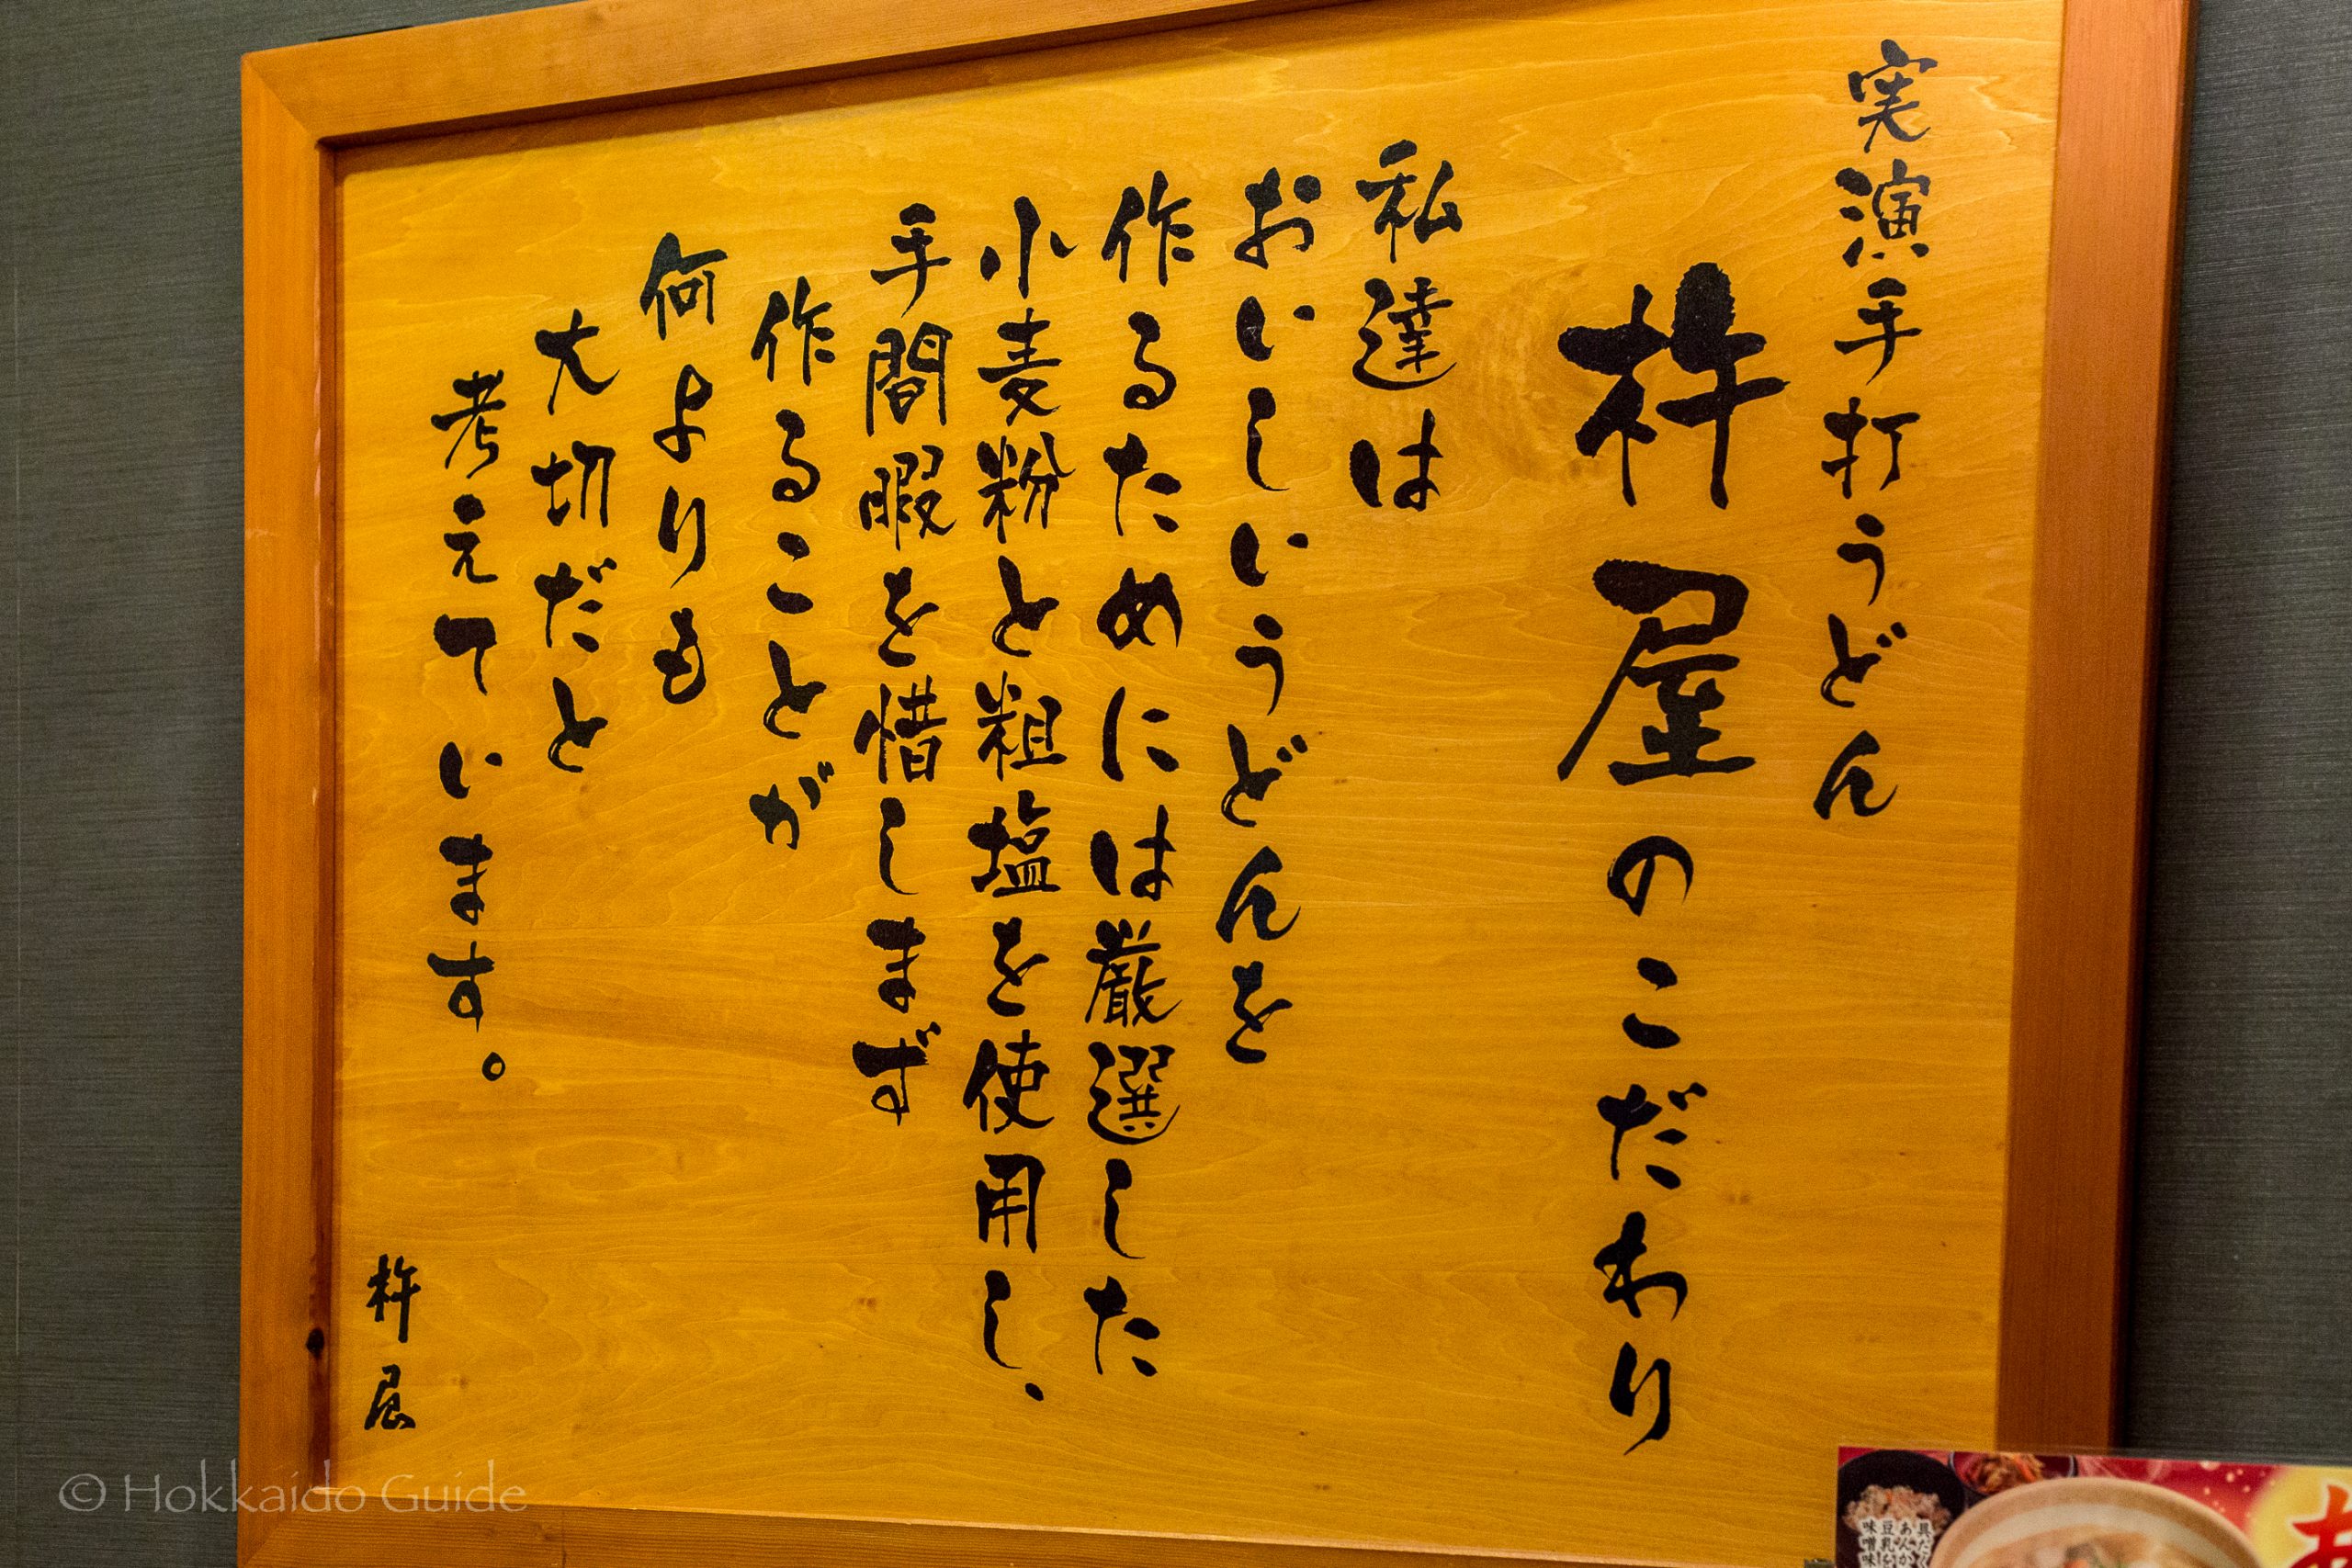 実演手打うどん
杵屋のこだわり
私達は
おいしいうどんを
作るためには厳選した
小麦粉と粗塩を使用し、
手間暇を惜しまず
作ることが
何よりも
大切だと
考えています。
杵屋
© Hokkaido Guide